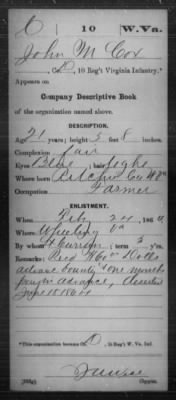 C 10 W.Va.
John M Cox
Co. D, 10 Reg't Virginia Infantry.*
Appears on
Company Descriptive Book
of the organization named above.
DESCRIPTION.
Age 21 years; height 5 feet 8 inches.
Complexion Fair
Eyes Blue; hair Light
Where born Ritchie Co
Occupation Farmer
ENLISTMENT.
When Feb 24, 186
Where Wheeling Va
By whom; term 3 y'rs.
Remarks: Recd $60 Dolls
advance bounty & One months
pay in advance, deserted
June 15 1864
*This organization became Co. D, 10 Reg't W. Va. Inf.
Copyist.